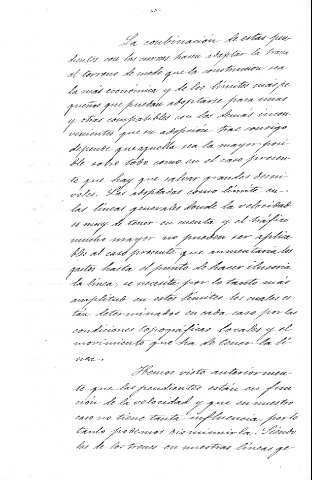 La combinacion de estas pen-
dientes con las curvas hacen adaptar la traza
al terreno de modo que la construccion sea
la más economica y de los limites más pe-
queños que puedan adoptarse para unas
y otras compatibles con los demas incon-
venientes que su adopcion trae consigo
depende que aquella sea la mayor posi-
ble sobre todo como en el caso presen-
te que hay que salvar grandes desni-
veles. Las adoptadas como limite en
las lineas generales donde la velocidad
es muy de tener en cuenta y el tráfico
mucho mayor no pueden ser aplica-
bles al caso presente que aumentaria los
gastos hasta el punto de hacer ilusoria
la linea, se necesita por lo tanto más
amplitud en estos limites los cuales es-
tan determinados en cada caso por las
condiciones topográficas locales y el
movimiento que ha de tener la li-
nea.
Hemos visto anteriormen-
te que las pendientes están en fun-
ción de la velocidad y que en nuestro
caso no tiene tanta influencia, por lo
tanto podemos disminuirla. Siendo
las de los trenes en nuestras lineas ge-